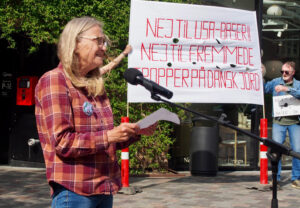 NEJ TIL USA-BASER!
NEJ TIL FREMMEDE
TROPPER PÅ DANSK JORD